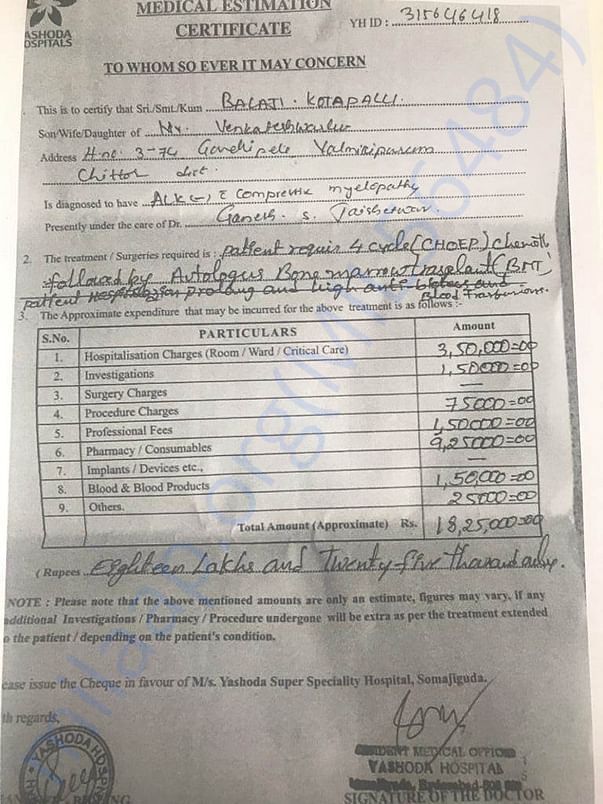 MEDICAL ESTIMATION
CERTIFICATE
ASHODA
OSPITALS
YH ID : 315646418
TO WHOM SO EVER IT MAY CONCERN
This is to certify that Sri./Smt./Kum BALAJI . KOTAPALLI.
Son/Wife/Daughter of Mr. Venkateshwarlu
Address H.no. 3-74 Gandhipeta Valmikipuram
Chittor dist.
Is diagnosed to have ALK(-) c compressive myelopathy
Presently under the care of Dr. Ganesh. S. Jaishetwar
2. The treatment / Surgeries required is : patient requir 4 cycle (CHOEP) chemoth
followed by Autologus Bone marrow trasplant (BMT)
patient prolong and high anti-biotics and
Blood Transfusions.
3. The Approximate expenditure that may be incurred for the above treatment is as follows :-
S.No. PARTICULARS Amount
1. Hospitalisation Charges (Room / Ward / Critical Care) 3,50,000=00
2. Investigations 1,50000=00
3. Surgery Charges —
4. Procedure Charges 75000=00
5. Professional Fees 1,50000=00
6. Pharmacy / Consumables 9,25000=00
7. Implants / Devices etc., —
8. Blood & Blood Products 1,50,000=00
9. Others. 25000=00
Total Amount (Approximate) Rs. 18,25,000=00
(Rupees Eighteen Lakhs and Twenty five thousand only.
NOTE : Please note that the above mentioned amounts are only an estimate, figures may vary, if any
additional Investigations / Pharmacy / Procedure undergone will be extra as per the treatment extended
o the patient / depending on the patient's condition.
ease issue the Cheque in favour of M/s. Yashoda Super Speciality Hospital, Somajiguda.
th regards,
YASHODA HOSPI
RESIDENT MEDICAL OFFICER
YASHODA HOSPITAL
Hyderabad
SIGNATURE OF THE DOCTOR